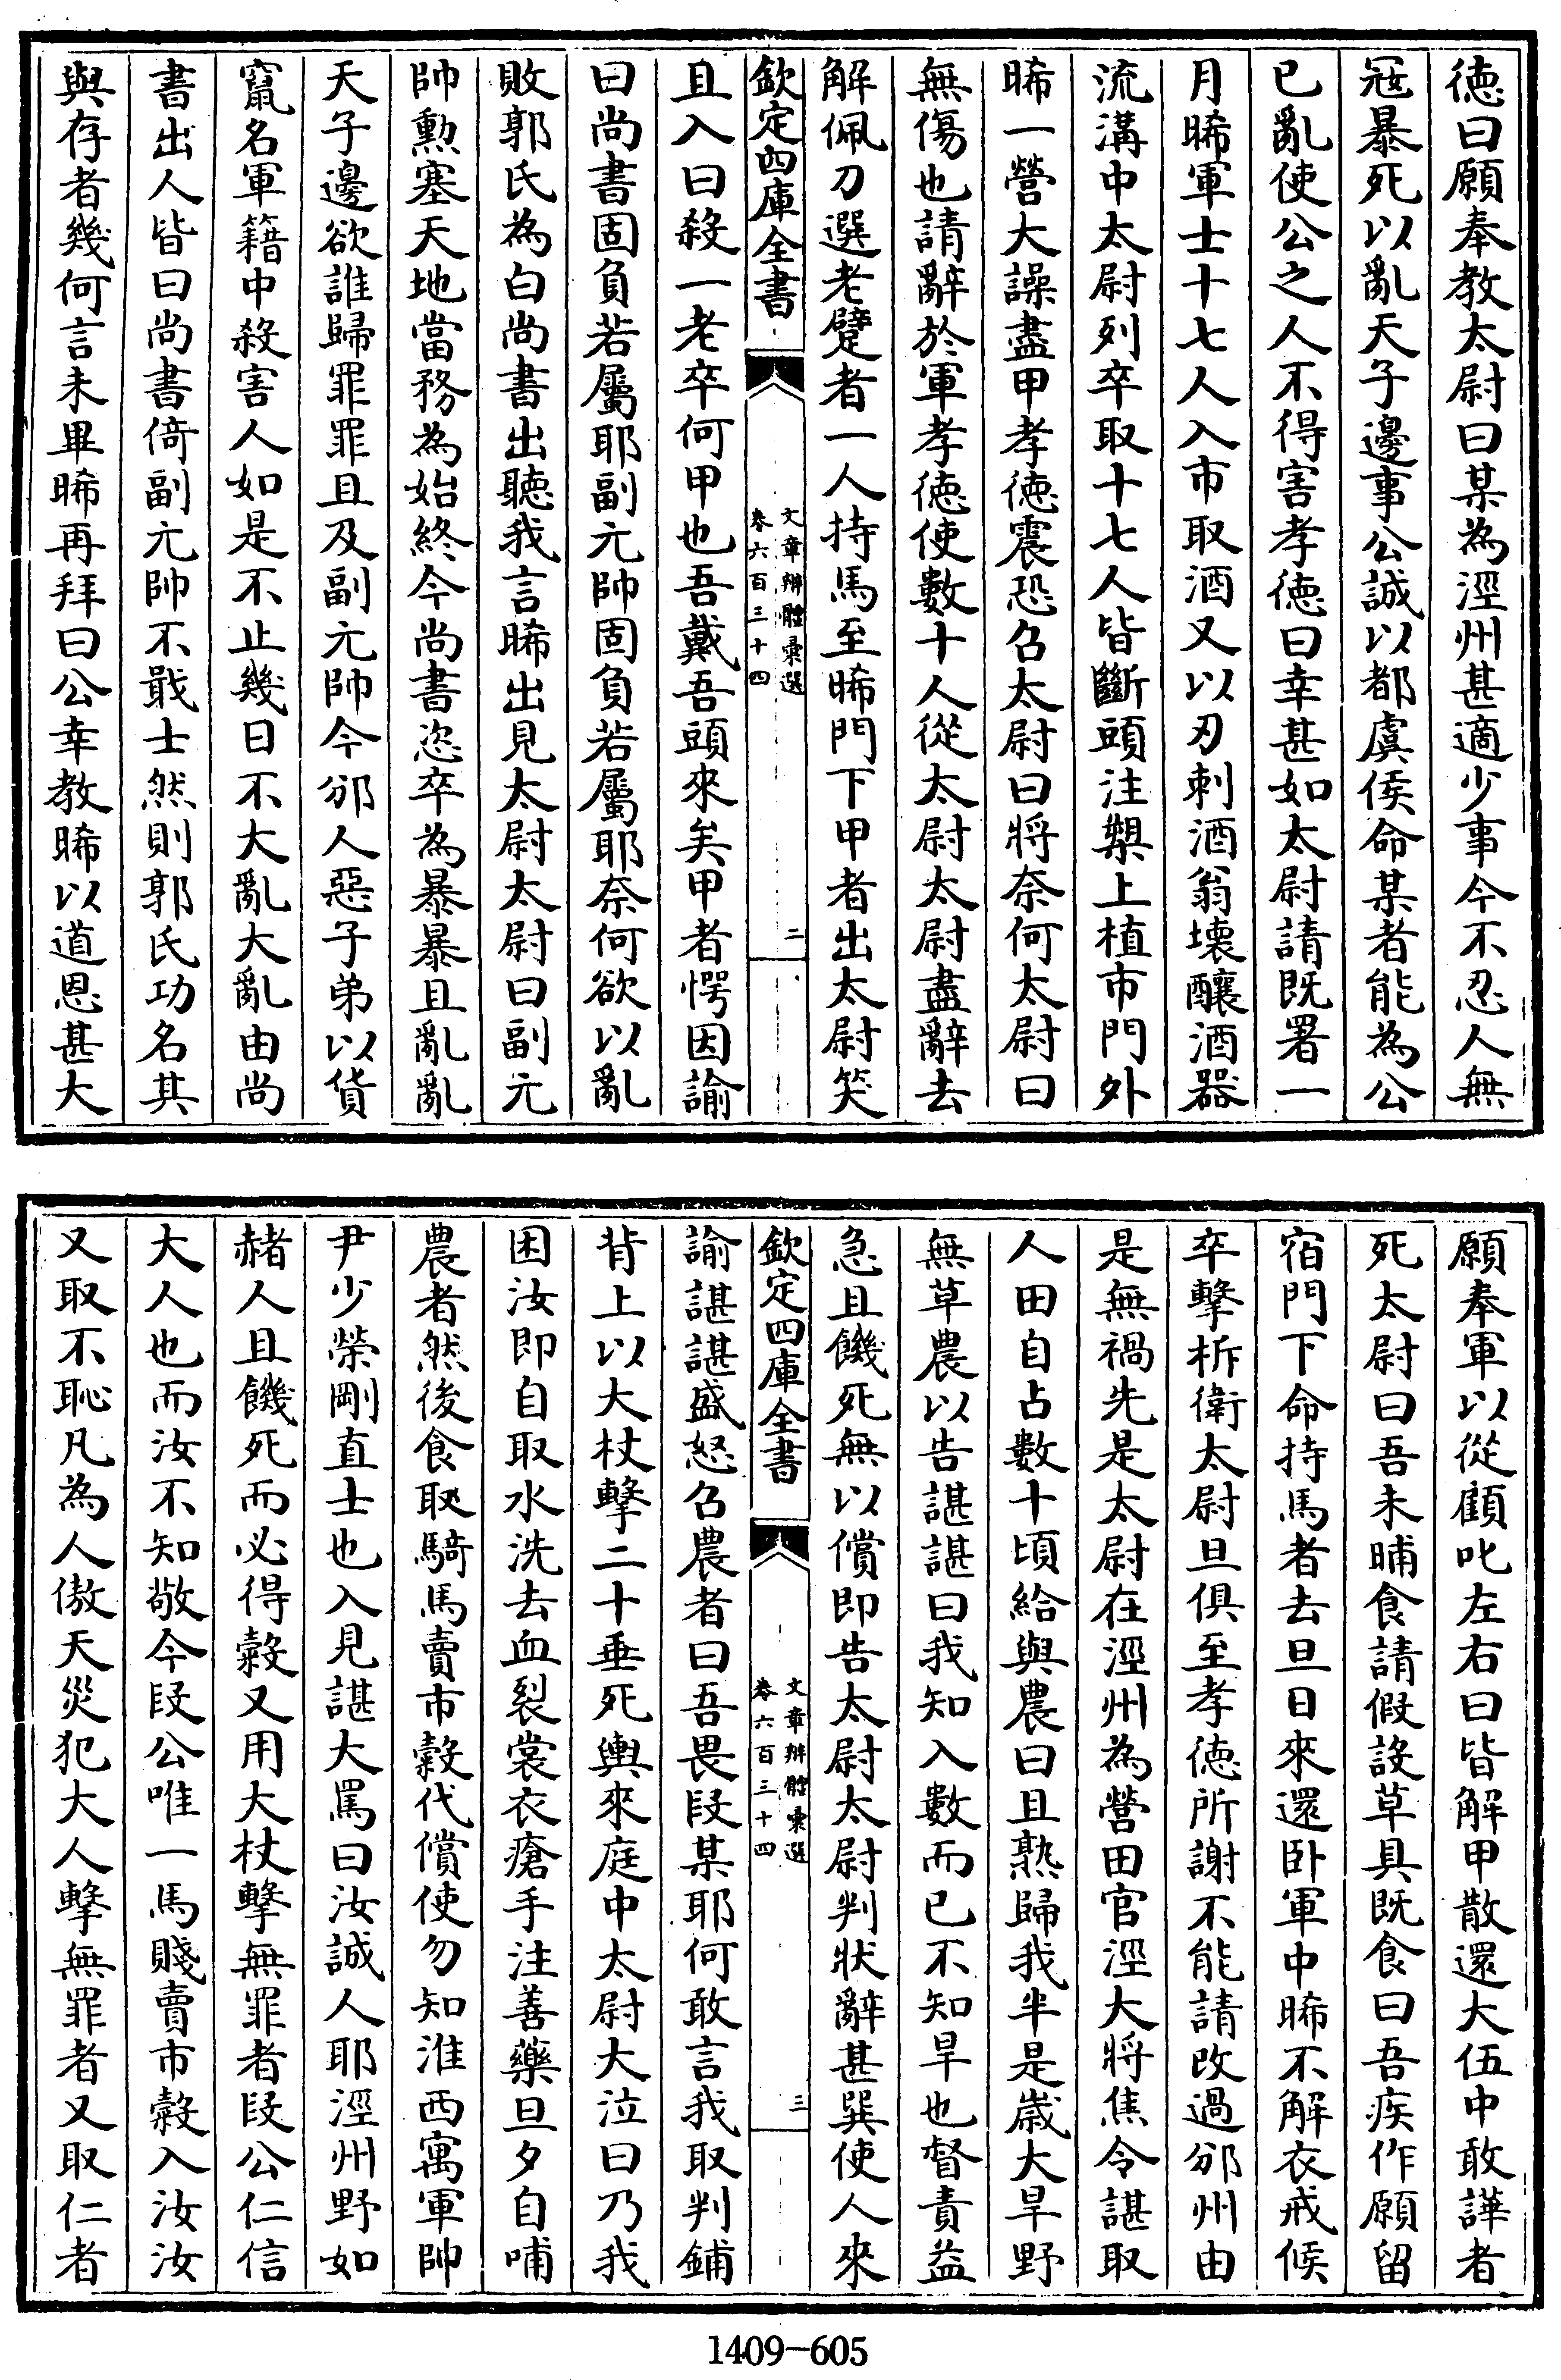 德曰願奉教太尉曰某為涇州甚適少事今不忍人無
冦暴死以亂天子邊事公誠以都虞侯命某者能為公
已亂使公之人不得害孝德曰幸甚如太尉請既署一
月晞軍士十七人入市取酒又以刃刺酒翁壊釀酒器
流溝中太尉列卒取十七人皆斷頭注槊上植市門外
晞一營大譟盡甲孝德震恐召太尉曰將奈何太尉曰
無傷也請辭於軍孝德使數十人從太尉太尉盡辭去
解佩刀選老躄者一人持馬至晞門下甲者出太尉笑
欽定四庫全書
文章辨體彙選
卷六百三十四
二
且入曰殺一老卒何甲也吾戴吾頭來矣甲者愕因諭
曰尚書固負若屬耶副元帥固負若屬耶奈何欲以亂
敗郭氏為白尚書出聽我言晞出見太尉太尉曰副元
帥勲塞天地當務為始終今尚書恣卒為暴暴且亂亂
天子邊欲誰歸罪罪且及副元帥今邠人惡子弟以貨
竄名軍籍中殺害人如是不止幾日不大亂大亂由尚
書出人皆曰尚書倚副元帥不戢士然則郭氏功名其
與存者幾何言未畢晞再拜曰公幸教晞以道恩甚大
願奉軍以從顧叱左右曰皆解甲散還大伍中敢譁者
死太尉曰吾未晡食請假設草具既食曰吾疾作願留
宿門下命持馬者去旦日來還卧軍中晞不解衣戒候
卒擊柝衛太尉旦俱至孝德所謝不能請改過邠州由
是無禍先是太尉在涇州為營田官涇大將焦令諶取
人田自占數十頃給與農曰且熟歸我半是歲大旱野
無草農以告諶諶曰我知入數而已不知旱也督責益
急且饑死無以償即告太尉太尉判狀辭甚巽使人來
欽定四庫全書
文章辨體彙選
卷六百三十四
三
諭諶諶盛怒召農者曰吾畏段某耶何敢言我取判鋪
背上以大杖擊二十垂死輿來庭中太尉大泣曰乃我
困汝即自取水洗去血裂裳衣瘡手注善藥旦夕自哺
農者然後食取騎馬賣市糓代償使勿知淮西寓軍帥
尹少榮剛直士也入見諶大罵曰汝誠人耶涇州野如
赭人且饑死而必得糓又用大杖擊無罪者段公仁信
大人也而汝不知敬今段公唯一馬賤賣市糓入汝汝
又取不恥凡為人傲天災犯大人擊無罪者又取仁者
1409-605